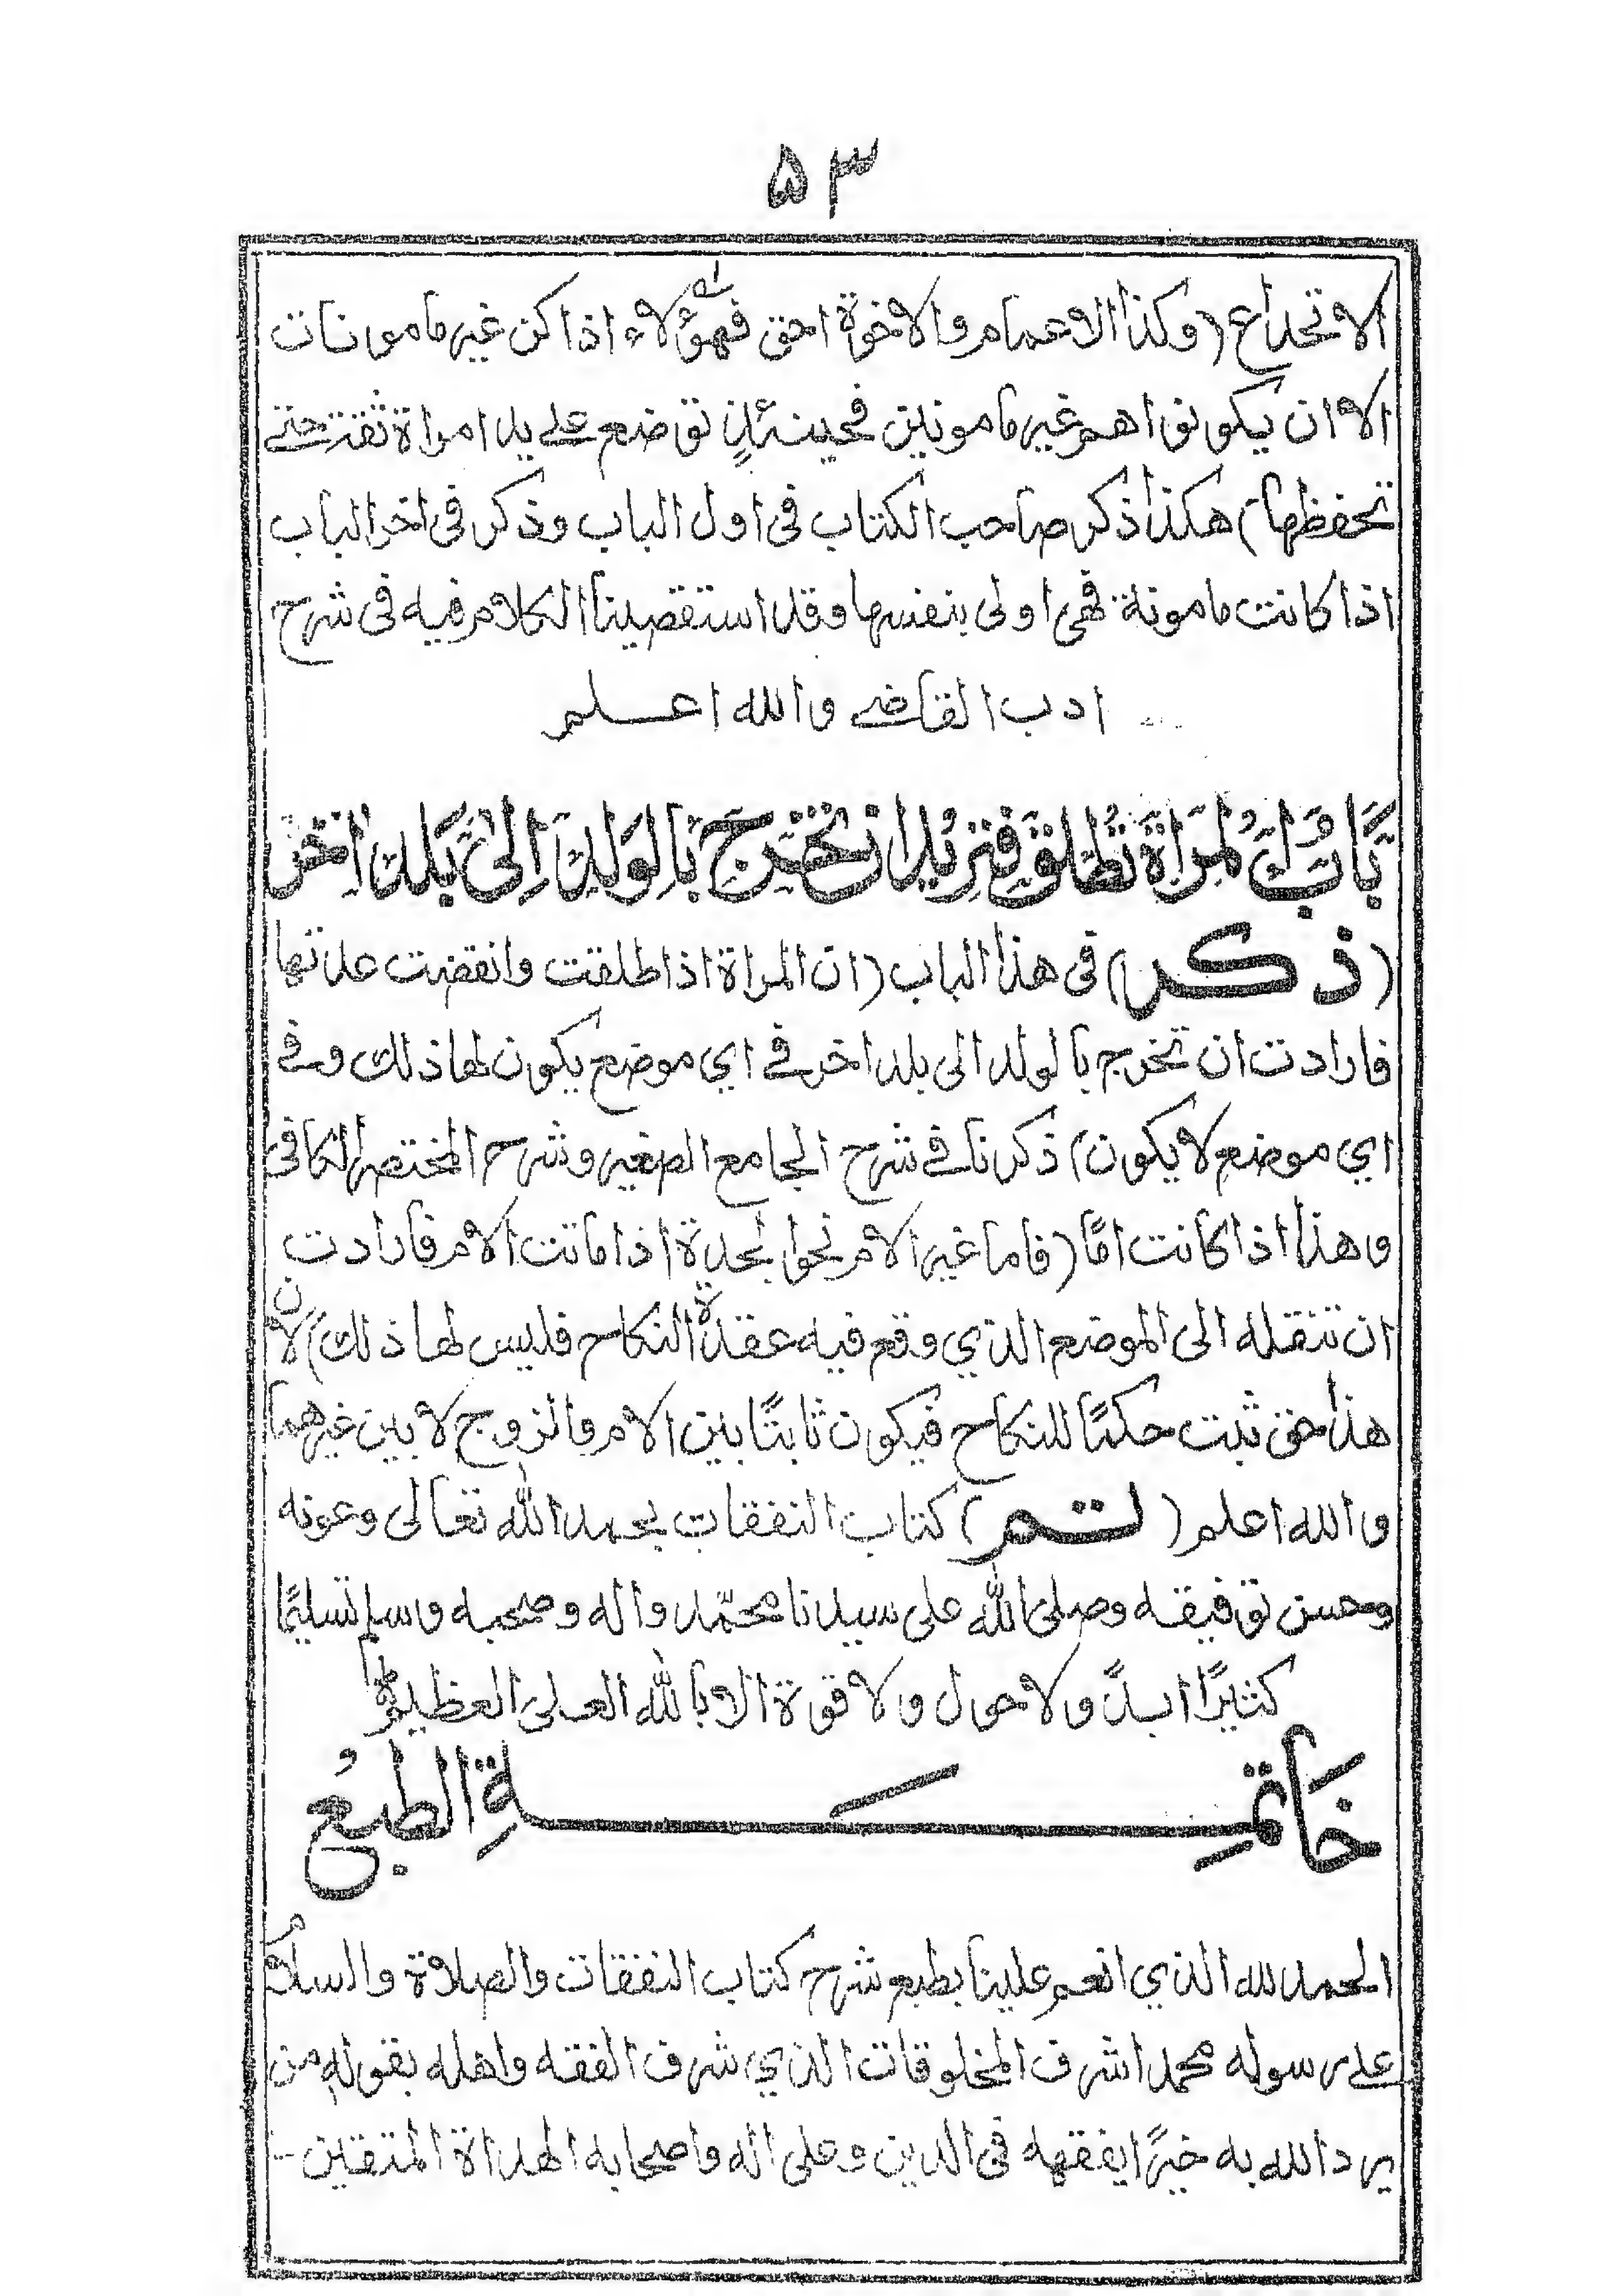 ۵۳
الانخداع (وكذا الاعمام والاخوة احق فهؤلاء اذا كن غير مامونات
الا ان يكونوا هم غير مامونين فحينئذٍ توضع على يد امراة ثقة حتى
تحفظها) هكذا ذكر صاحب الكتاب فى اول الباب وذكر فى اخر الباب
اذا كانت مامونة فهى اولى بنفسها وقد استقصينا الكلام فيه فى شرح
ادب القاضى والله اعلم
بَابُ الْمَرْاَةِ تُطَلَّقُ فَتُرِيْدُ اَنْ تَخْرُجَ بَالْوَلَدِ اِلىٰ بَلَدٍ اٰخَرَ
(ذكر) فى هذا الباب (ان المراة اذا طلقت وانقضت عدتها
فارادت ان تخرج بالولد الى بلد اخر فى اي موضع يكون لها ذلك وفى
اي موضع لا يكون) ذكرنا فى شرح الجامع الصغير وشرح المختصر الكافى
وهذا اذا كانت امًّا (فاما غير الام نحو الجدة اذا ماتت الام فارادت
ان تنقله الى الموضع الذي وقع فيه عقدة النكاح فليس لها ذلك) لان
هذا حق ثبت حكمًا للنكاح فيكون ثابتًا بين الام والزوج لا بين غيرهما
والله اعلم (تم) كتاب النفقات بحمد الله تعالى وعونه
وحسن توفيقه وصلى الله على سيدنا محمّد واله وصحبه وسلم تسليمًا
كثيرًا ابدًا ولا حول ولا قوة الا بالله العلى العظيم
خَاتِمَةِ الطبعُ
الحمد لله الذي انعم علينا بطبع شرح كتاب النفقات والصلاة والسلام
على رسوله محمد اشرف المخلوقات الذي شرف الفقه واهله بقوله من
يرد الله به خيرًا يفقهه فى الدين وعلى اله واصحابه الهداة المتقين